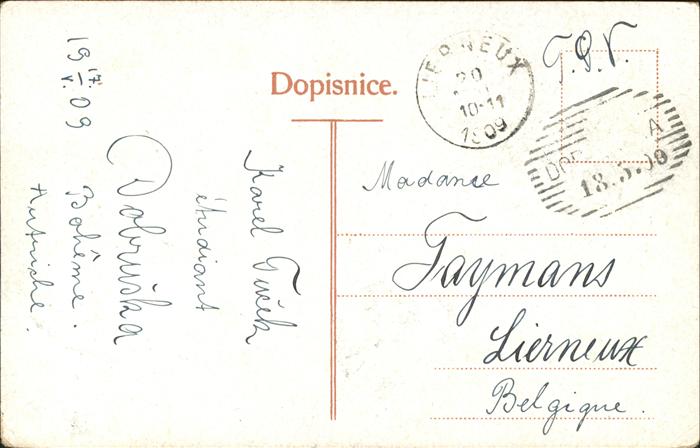 19 17/V. 09
Karel Tuček
étudiant
Dobruška
Bohême.
Autriche.
Dopisnice.
LIERNEUX
20
10-11
1909
T.C.V.
18.5.09
Madame
Taymans
Lierneux
Belgique.